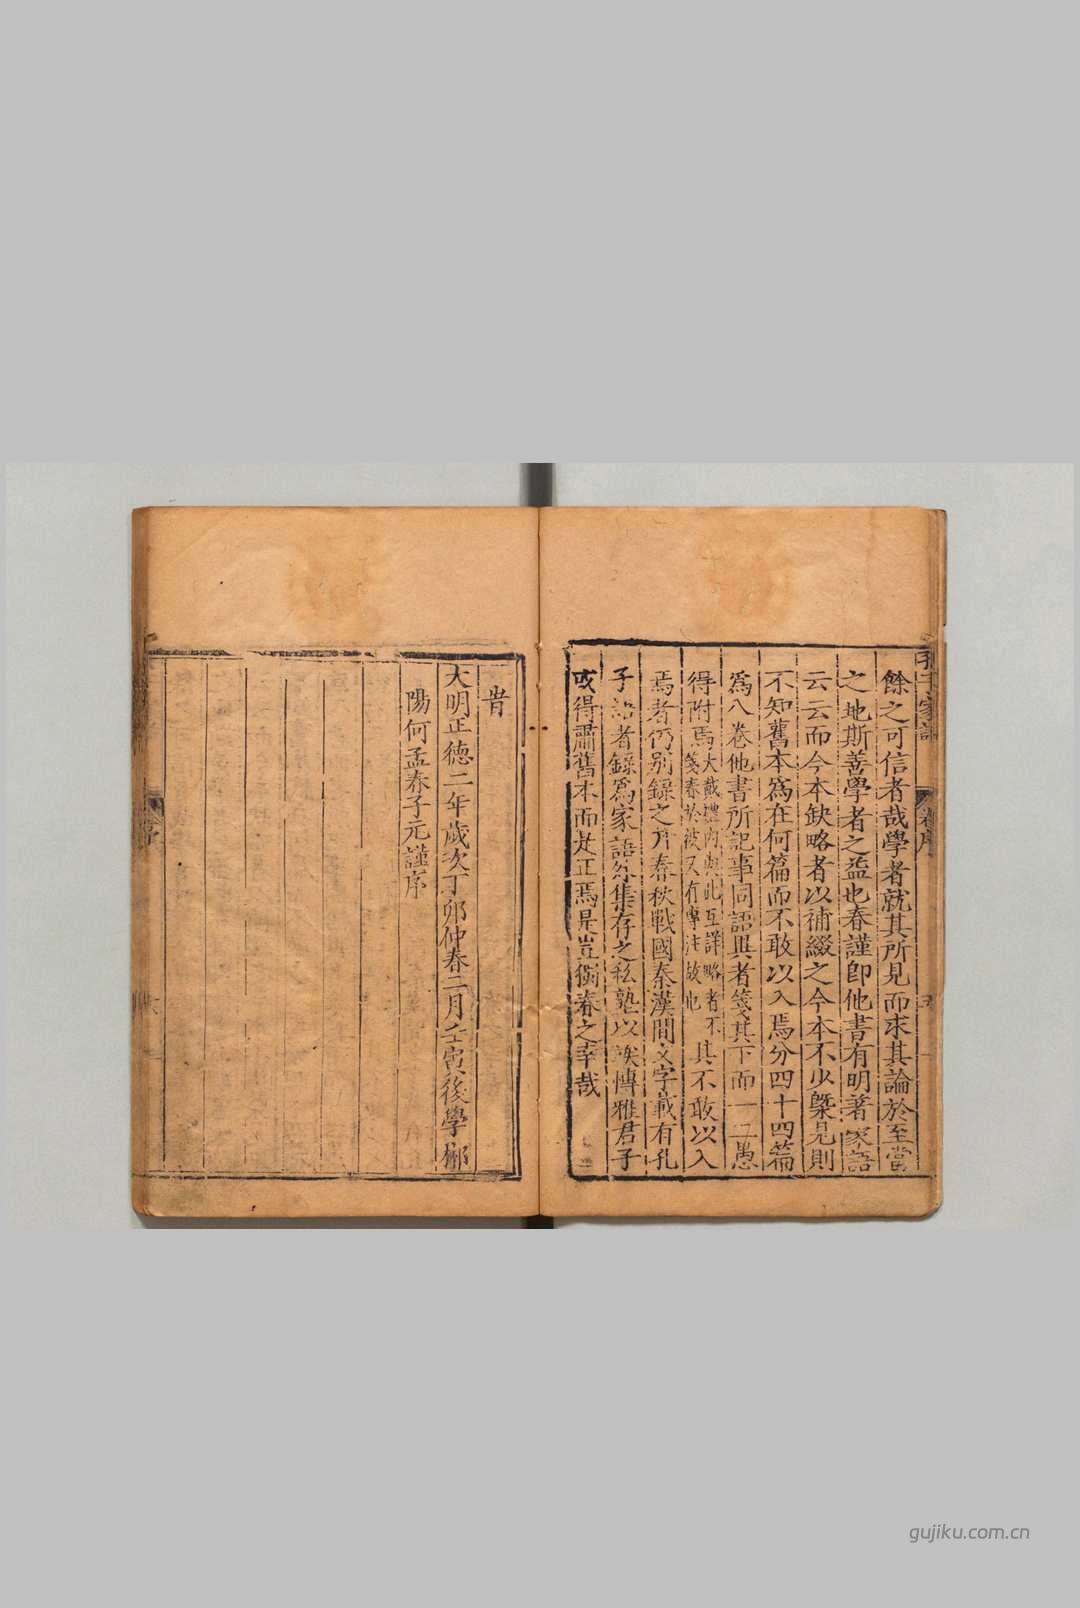 孔子家語
卷序
五
餘之可信者哉學者就其所見而求其論於至當
之地斯善學者之益也春謹卽他書有明著家語
云云而今本缺略者以補綴之今本不少槩見則
不知舊本爲在何篇而不敢以入焉分四十四篇
爲八卷他書所記事同語異者箋其下而一二愚
得附焉大戴禮內與此互詳略者不
箋春於彼又有專注故也
其不敢以入
焉者仍別錄之并春秋戰國秦漢間文字載有孔
子語者錄爲家語外集存之私塾以俟博雅君子
或得肅舊本而是正焉是豈獨春之幸哉
旹
大明正德二年歲次丁卯仲春二月壬寅後學郴
陽何孟春子元謹序
gujiku.com.cn